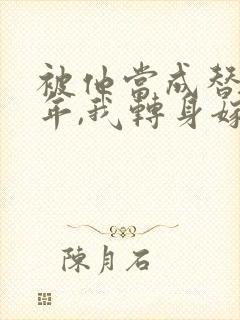 被他當成替
年,我轉身嫁
陳月石